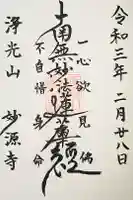 令和三年二月廿八日
一心欲見佛
南無妙法蓮華経
不自惜身命
浄光山
妙源寺